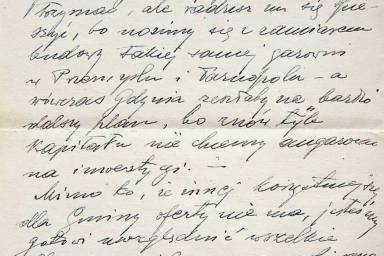 trzymać, ale radzisz mi się
szyć, bo nosimy się z zamiarem
budowy takiej samej gazowni
w Przemyślu i Tarnopolu – a
wówczas Gdynia zostałaby na bardzo
dalszy plan, bo znów tyle
kapitału nie chcemy angażować
na inwestycji. –
Mimo to, że innej korzystniejszej
dla Gminy oferty nie ma, jesteśmy
gotowi uwzględnić wszelkie